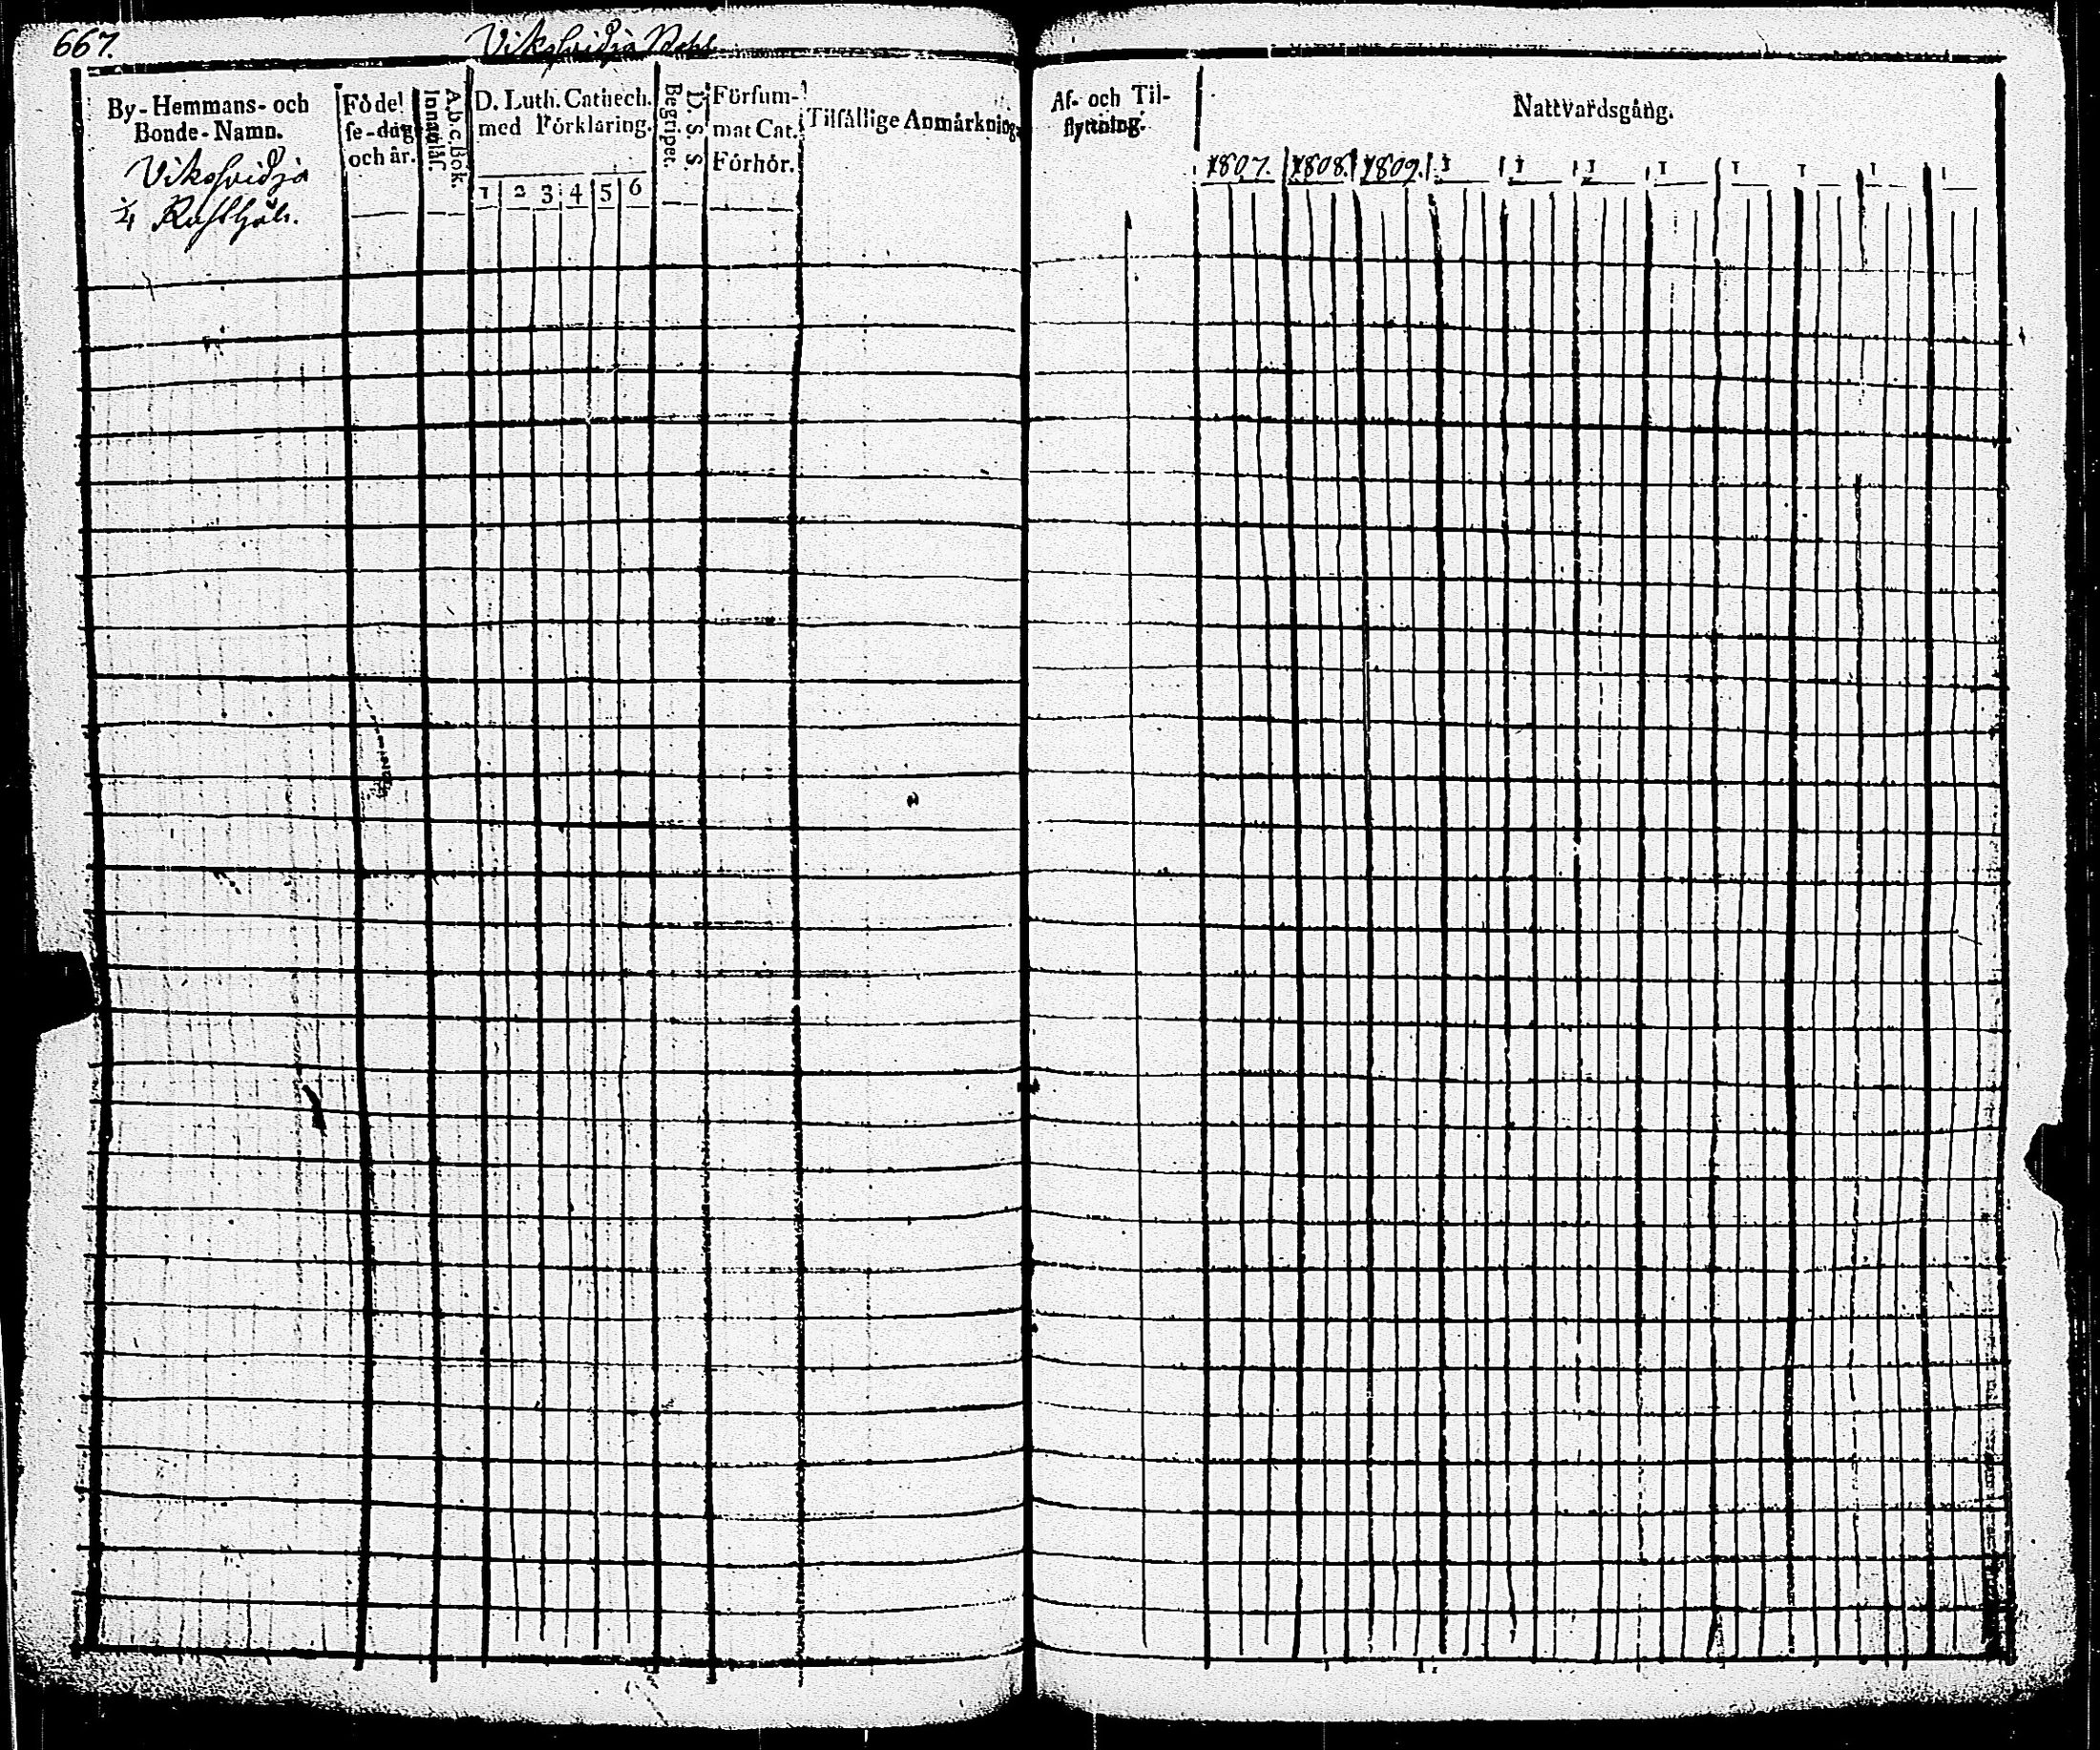 667.
Viksfvidja
By-Hemmans- och
Bonde-Namn.
Viksfvidja
¼ Rusthåll.
Födel
se-dag
och år.
A.b.c.Bok.
Innanläs.
D. Luth. Cathech.
med Förklaring.
1 2 3 4 5 6
D. S. S.
Begripet.
Försum-
mat Cat.
Förhör.
Tilfällige Anmärkning.
Af- och Til-
flyttning.
Nattvardsgång.
1807. 1808. 1809. 1 1 1 1 1 1 1 1